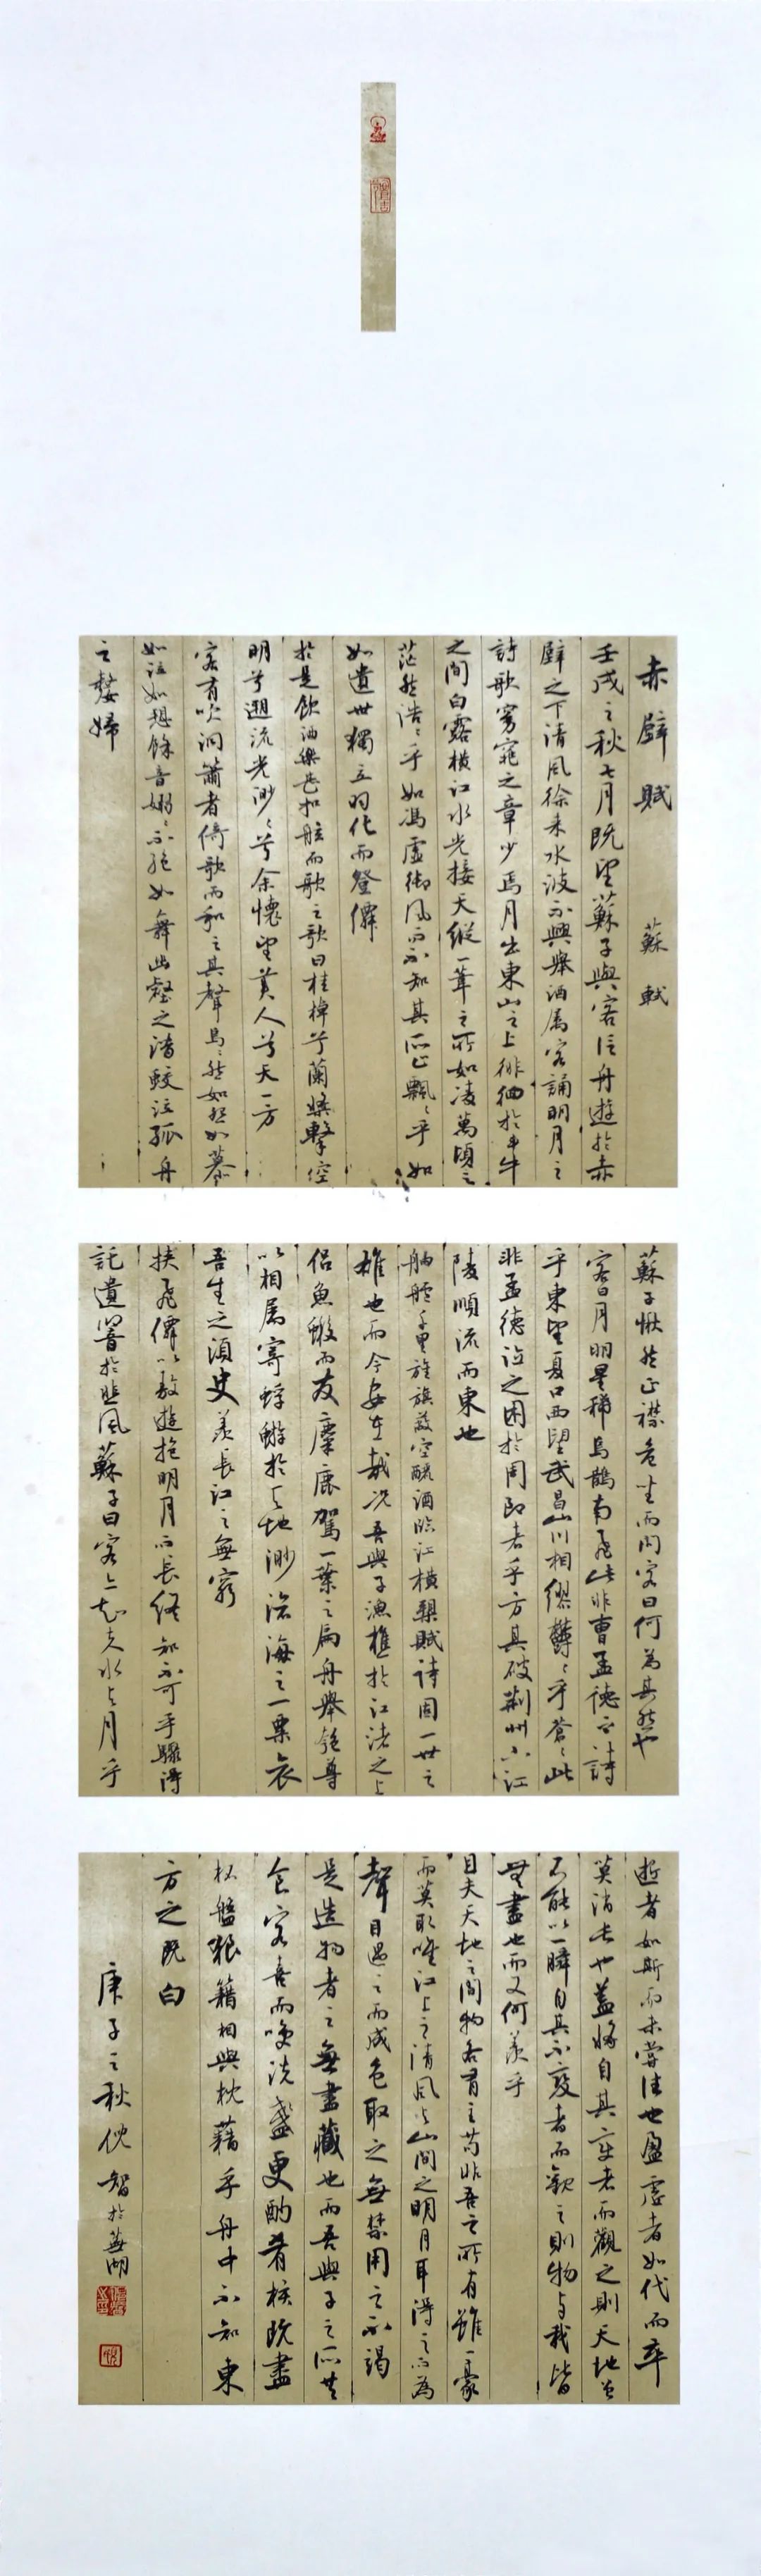 赤壁賦 蘇軾
壬戌之秋七月既望蘇子與客泛舟遊於赤
壁之下清風徐来水波不興舉酒属客誦明月之
詩歌窈窕之章少焉月出東山之上徘徊於斗牛
之間白露横江水光接天縱一葦之所如凌萬頃之
茫然浩〻乎如馮虚御風而不知其所止飄〻乎如
如遺世獨立羽化而登僊
於是飲酒樂甚扣舷而歌之歌曰桂棹兮蘭槳擊空
明兮遡流光渺〻兮余懷望美人兮天一方
客有吹洞簫者倚歌而和之其聲烏〻然如怨如慕
如泣如愬餘音嫋〻不絶如舞幽壑之潜蛟泣孤舟
之嫠婦
蘇子愀然正襟危坐而問客曰何為其然也
客曰月明星稀烏鵲南飛此非曹孟德之詩
乎東望夏口西望武昌山川相繆鬱〻乎蒼〻此
非孟德之困於周郎者乎方其破荆州下江
陵順流而東也
舳艫千里旌旗蔽空釃酒臨江横槊賦詩固一世之
雄也而今安在哉况吾與子漁樵於江渚之上
侣魚蝦而友麋鹿駕一葉之扁舟舉匏尊
以相属寄蜉蝣於天地渺滄海之一粟哀
吾生之須臾羨長江之無窮
挟飛僊以敖遊抱明月而長終知不可乎驟得
託遺響於悲風蘇子曰客亦知夫水与月乎
逝者如斯而未嘗往也盈虚者如代而卒
莫消長也蓋將自其变者而觀之則天地曾
不能以一瞬自其不變者而觀之則物与我皆
無盡也而又何羨乎
且夫天地之間物各有主苟非吾之所有雖一豪
而莫取唯江上之清風与山間之明月耳得之而為
聲目遇之而成色取之無禁用之不竭
是造物者之無盡藏也而吾與子之所共
食客喜而唉洗盞更酌肴核既盡
杯盤狼籍相與枕藉乎舟中不知東
方之既白
庚子之秋 智於蕪湖